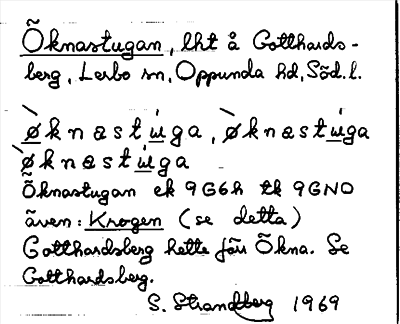 Öknastugan, lht å Gotthards-
berg, Lerbo sn, Oppunda hd, Söd. l.
`øknastùga, `øknastùga
`øknastùga
Öknastugan ek 9G6h tk 9GNO
även: Krogen (se detta)
Gotthardsberg hette förr Ökna. Se
Gotthardsberg.
S. Strandberg 1969